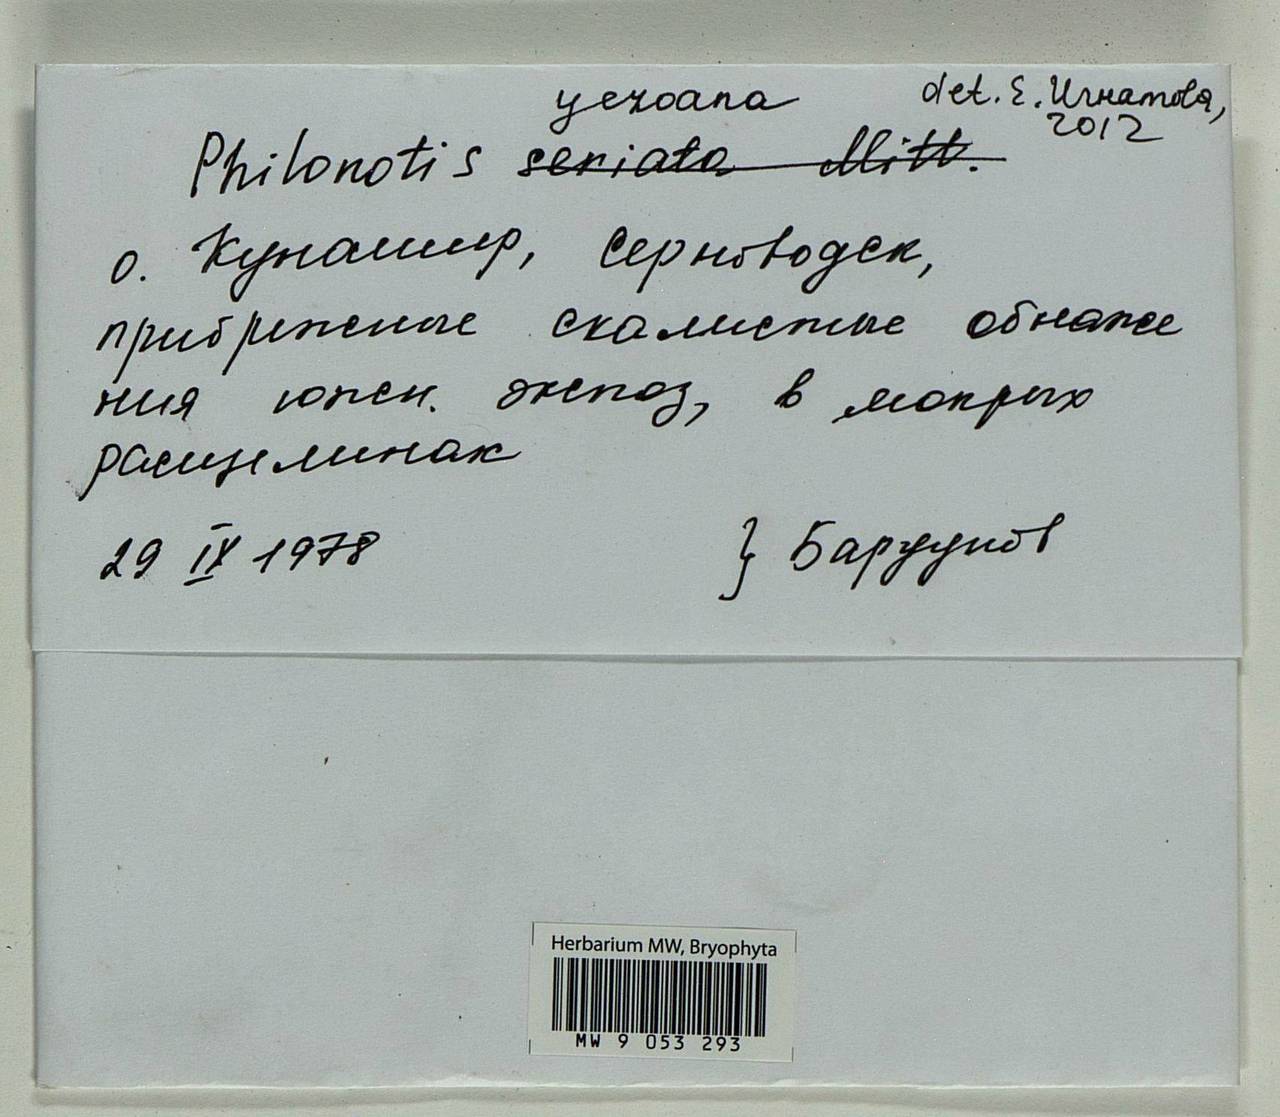 yezoana det. Е. Игнатова,
2012
Philonotis seriata Mitt.
о. Кунашир, Серноводск,
прибрежные скалистые обнаже
ния южн. экспоз, в мокрых
расщелинах
29 IX 1978 } Бардунов
Herbarium MW, Bryophyta
MW 9 053 293